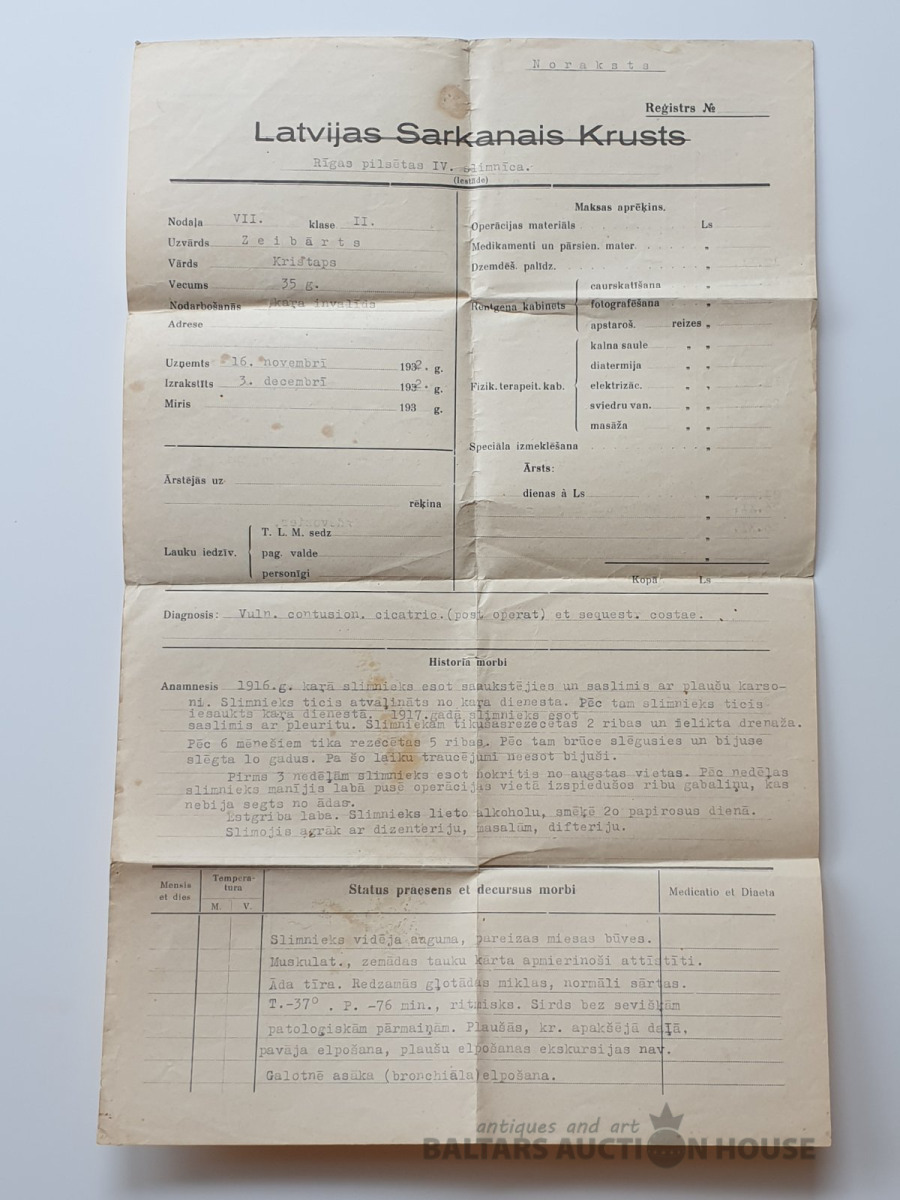 Noraksts
Reģistrs №
Latvijas Sarkanais Krusts
Rīgas pilsētas IV. slimnīca.
(Iestāde)
Nodaļa VII. klase II.
Uzvārds Zeibārts
Vārds Kristaps
Vecums 35 g.
Nodarbošanās kara invalīds
Adrese
Uzņemts 16. novembrī 1932. g.
Izrakstīts 3. decembrī 1932. g.
Miris 193 g.
Ārstējās uz
rēķina
Lauku iedzīv.
T. L. M. sedz
pag. valde
personīgi
Maksas aprēķins.
Operācijas materiāls Ls
Medikamenti un pārsien. mater. "
Dzemdēš. palīdz. "
Rentgena kabinets
caurskatīšana "
fotografēšana "
apstaroš. reizes "
Fizik. terapeit. kab.
kalna saule " "
diatermija " "
elektrizāc. " "
sviedru van. " "
masāža " "
Speciāla izmeklēšana "
Ārsts:
dienas à Ls "
"
"
"
Kopā Ls
Diagnosis: Vuln. contusion. cicatric.(post operat) et sequest. costae.
Historia morbi
Anamnesis 1916.g. karā slimnieks esot saaukstējies un saslimis ar plaušu karso-
ni. Slimnieks ticis atvaļināts no kara dienesta. Pēc tam slimnieks ticis
iesaukts kara dienestā. 1917.gadā slimnieks esot
saslimis ar pleurītu. Slimniekam tikušasrezecētas 2 ribas un ielikta drenaža.
Pēc 6 mēnešiem tika rezecētas 5 ribas. Pēc tam brūce slēgusies un bijuse
slēgta lo gadus. Pa šo laiku traucējumi neesot bijuši.
Pirms 3 nedēļām slimnieks esot nokritis no augstas vietas. Pēc nedēļas
slimnieks manījis labā pusē operācijas vietā izspiedušos ribu gabaliņu, kas
nebija segts no ādas.
Ēstgriba laba. Slimnieks lieto alkoholu, smēķē 2o papirosus dienā.
Slimojis agrāk ar dizenteriju, masalām, difteriju.
Mensis et dies
Tempera-
tura
M. V.
Status praesens et decursus morbi
Medicatio et Diaeta
Slimnieks vidēja auguma, pareizas miesas būves.
Muskulat., zemādas tauku kārta apmierinoši attīstīti.
Āda tīra. Redzamās gļotādas miklas, normāli sārtas.
T.-37° . P. -76 min., ritmisks. Sirds bez sevišķām
patoloģiskām pārmaiņām. Plaušās, kr. apakšējā daļā,
pavāja elpošana, plaušu elpošanas ekskursijas nav.
Galotnē asāka (bronchiāla)elpošana.
antiques and art
BALTARS AUCTION HOUSE